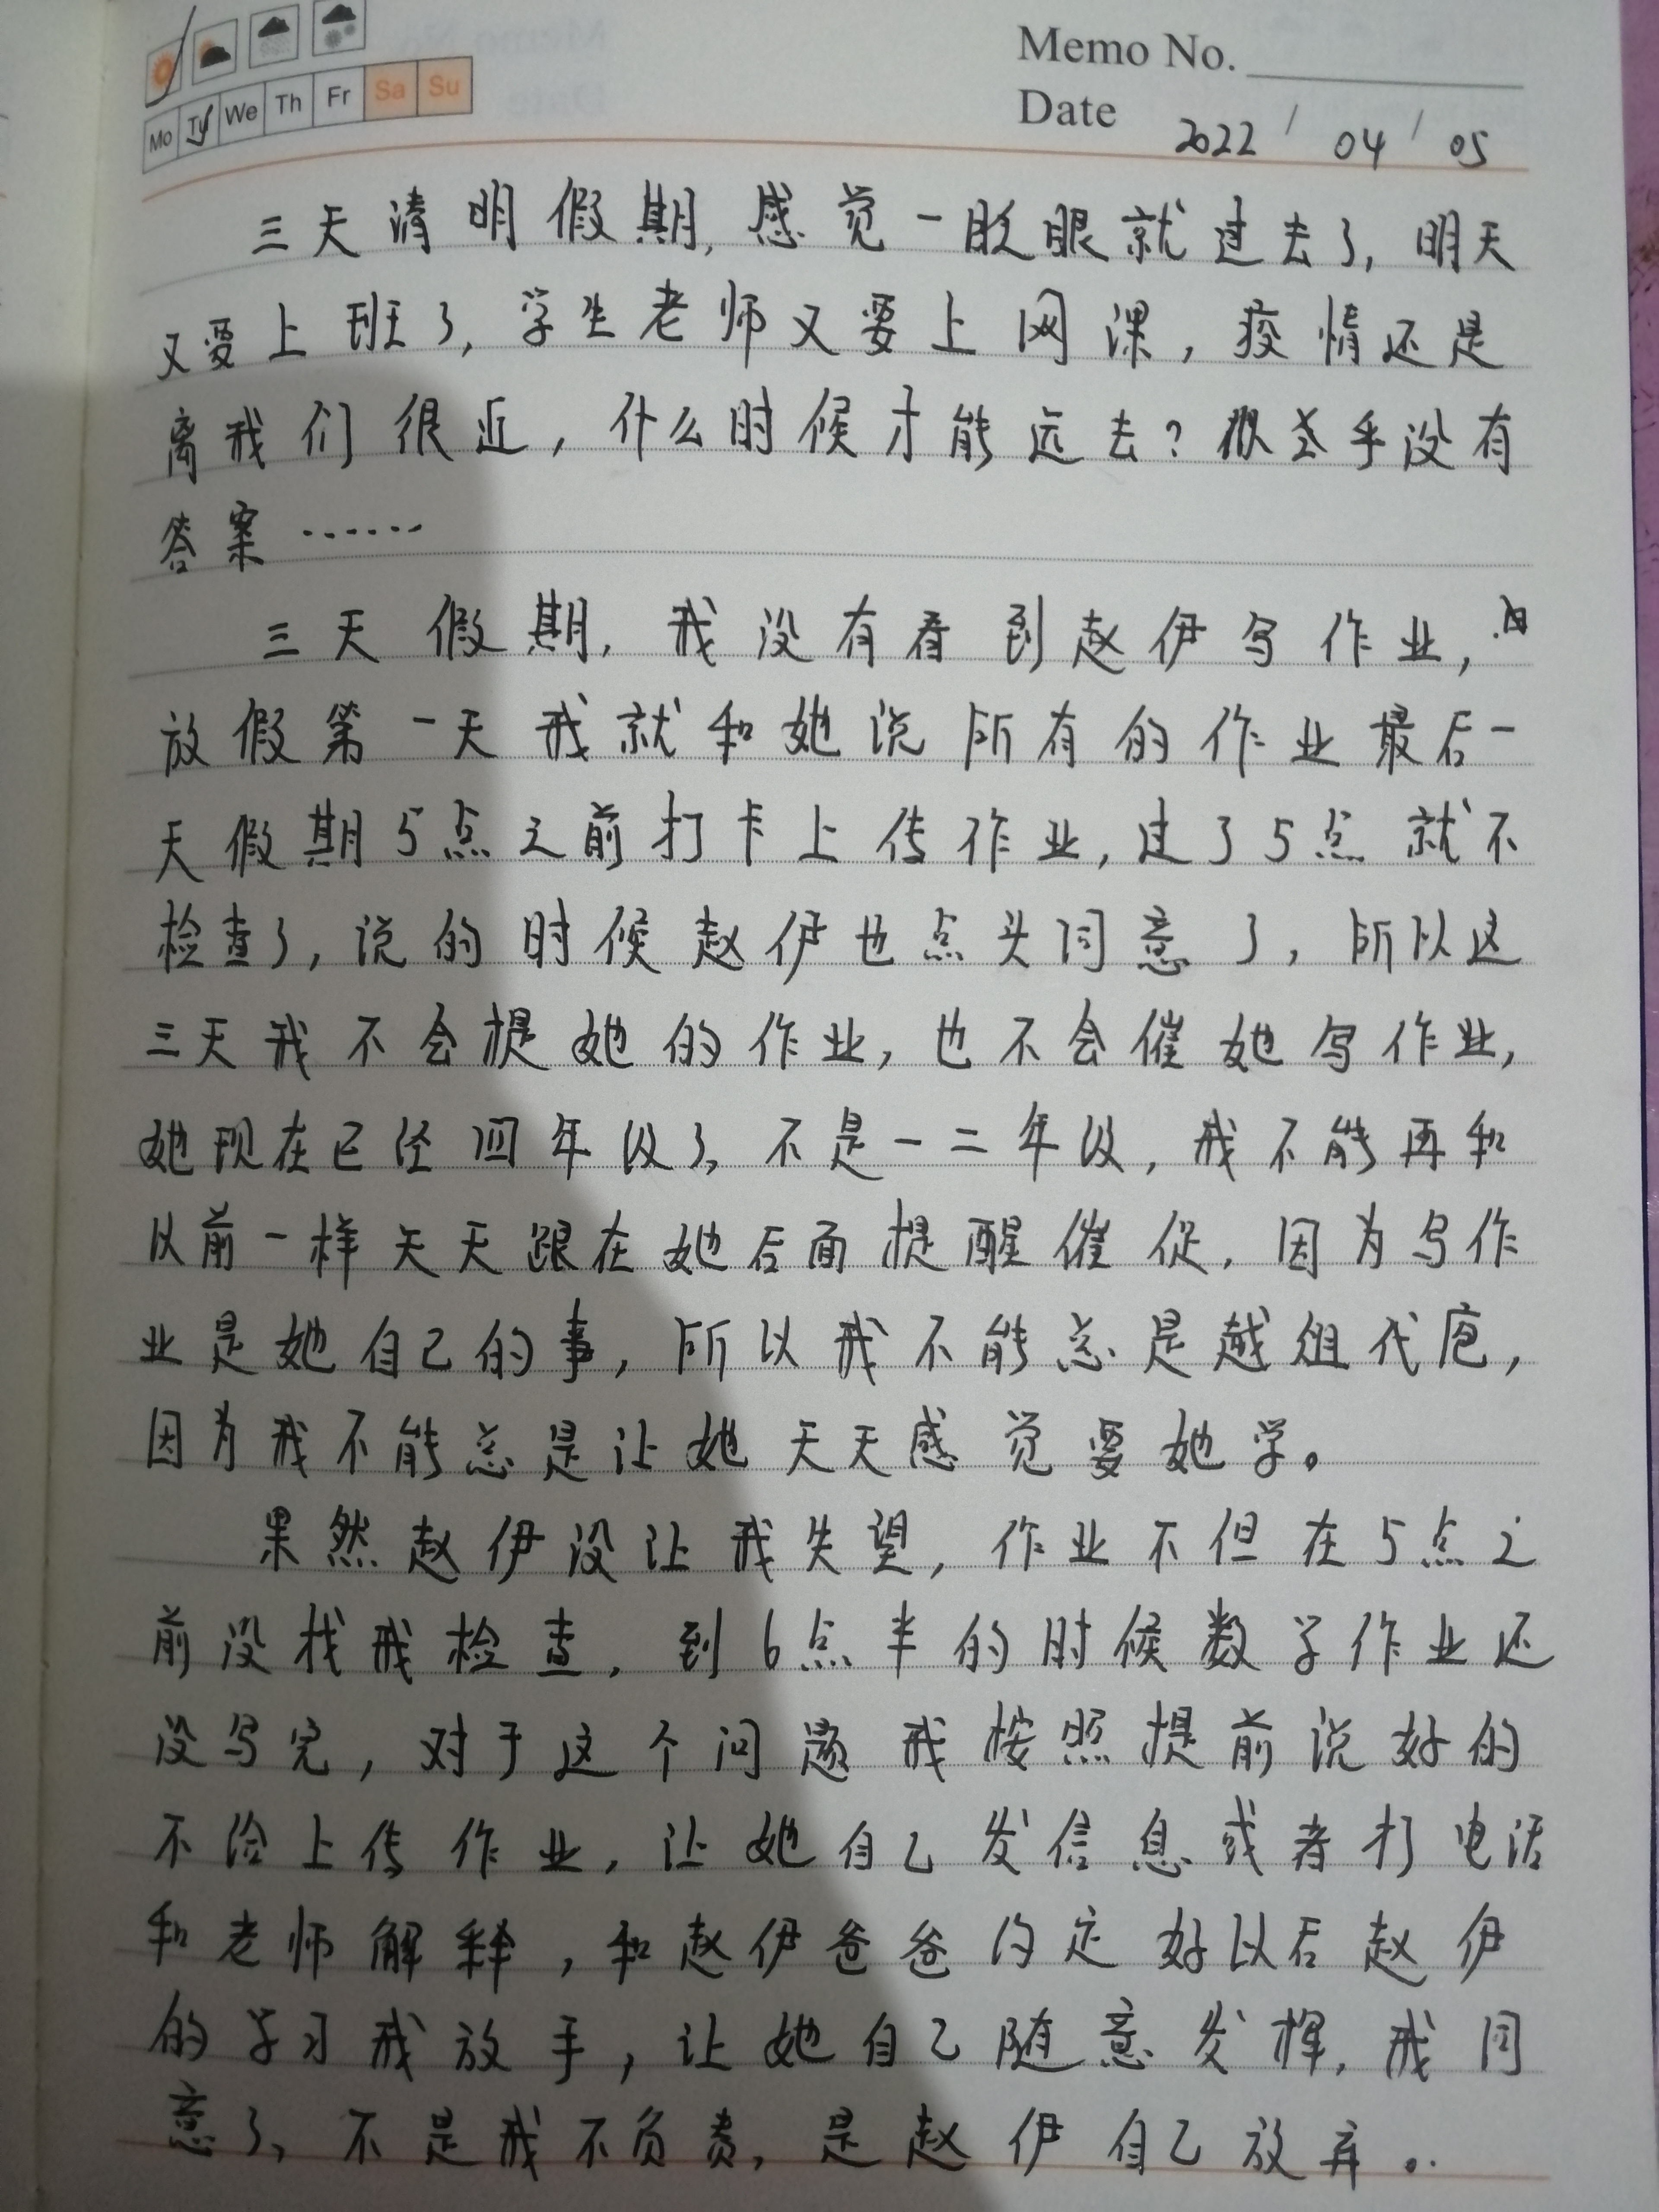 Memo No.
Mo Tu We Th Fr Sa Su
Date 2022 / 04 / 05
三天清明假期,感觉一眨眼就过去了,明天
又要上班了,学生老师又要上网课,疫情还是
离我们很近,什么时候才能远去?似乎没有
答案……
三天假期,我没有看到赵伊写作业,因
放假第一天我就和她说所有的作业最后一
天假期5点之前打卡上传作业,过了5点就不
检查了,说的时候赵伊也点头同意了,所以这
三天我不会提她的作业,也不会催她写作业,
她现在已经四年级了,不是一二年级,我不能再和
以前一样天天跟在她后面提醒催促,因为写作
业是她自己的事,所以我不能总是越俎代庖,
因为我不能总是让她天天感觉要她学。
果然赵伊没让我失望,作业不但在5点之
前没找我检查,到6点半的时候数学作业还
没写完,对于这个问题我按照提前说好的
不给上传作业,让她自己发信息或者打电话
和老师解释,和赵伊爸爸约定好以后赵伊
的学习我放手,让她自己随意发挥,我同
意了,不是我不负责,是赵伊自己放弃。